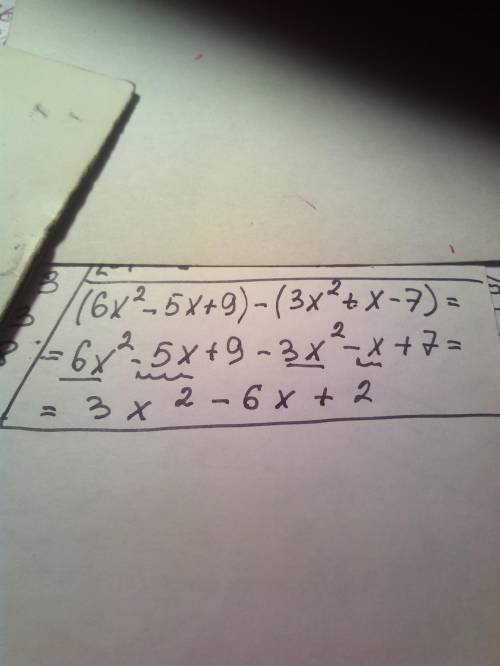 (6x² - 5x + 9) - (3x² + x - 7) =
= 6x² - 5x + 9 - 3x² - x + 7 =
= 3x² - 6x + 2